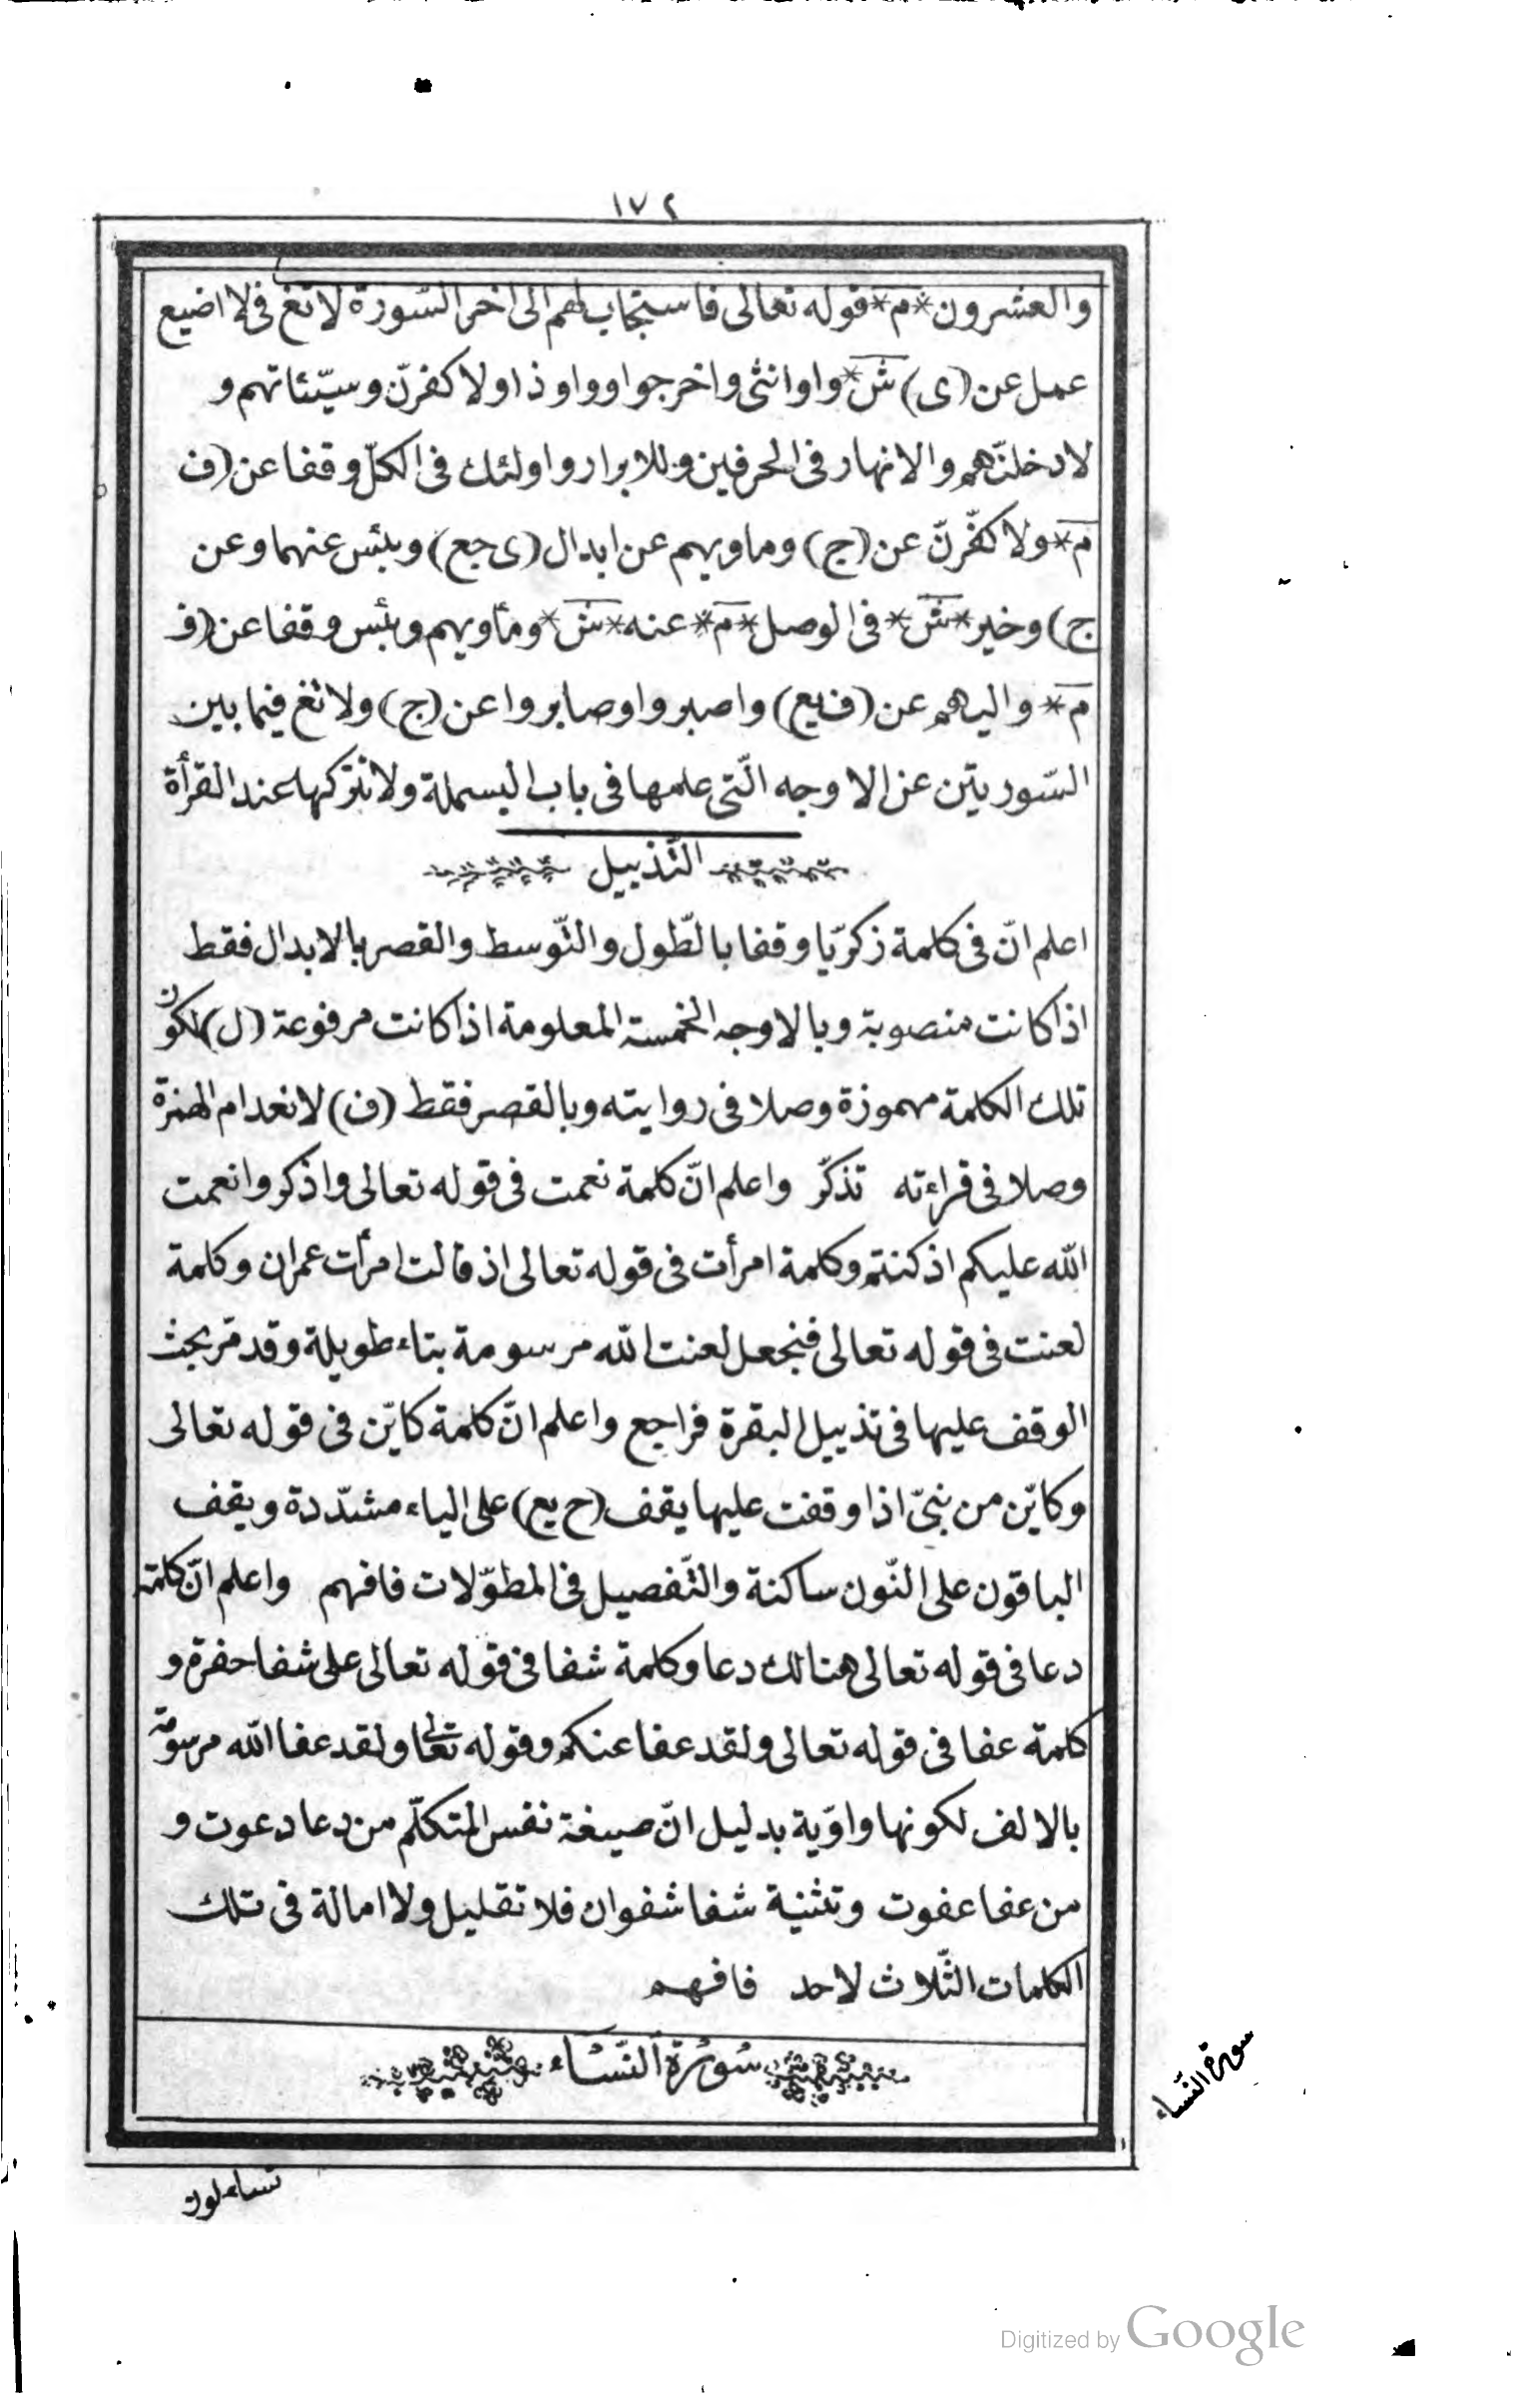 ١٧٢
والعشرون * م * قوله تعالى فاستجاب لهم الى اخر السّورة لا تغ فى لا اضيع
عمل عن (ى) ش * واو انثى واخرجوا وواوذا ولا كفرنّ وسيّئاتهم و
لادخلنّهم والانهار فى الحرفين وللابرار واولئك فى الكلّ وقفا عن (ف
م * ولا كفّرنّ عن (ج) وماويهم عن ابدال (ى جع) وبئس عنهما وعن
ج) وخير * ش * فى الوصل * م * عنه * ش * ومأويهم وبئس وقفا عن (ف
م * واليهم عن (ف يع) واصبروا وصابروا عن (ج) ولا تغ فيما بين
السّورتين عن الاوجه الّتى علمها فى باب البسملة ولا نتركها عند القرأة
التّذييل
اعلم انّ فى كلمة زكريّا وقفا بالطّول والتّوسط والقصر بالابدال فقط
اذا كانت منصوبة وبالاوجه الخمسة المعلومة اذا كانت مرفوعة (ل) لكون
تلك الكلمة مهموزة وصلا فى روايته وبالقصر فقط (ف) لانعدام الهمزة
وصلا فى قراءته تذكّر واعلم انّ كلمة نعمت فى قوله تعالى واذكروا نعمت
الله عليكم اذ كنتم وكلمة امرأت فى قوله تعالى اذ قالت امرأت عمران وكلمة
لعنت فى قوله تعالى فنجعل لعنت الله مرسومة بتاء طويلة وقد مرّ بحث
الوقف عليها فى تذييل البقرة فراجع واعلم انّ كلمة كايّن فى قوله تعالى
وكايّن من نبىّ اذا وقفت عليها يقف (ح يع) على الياء مشدّدة ويقف
الباقون على النّون ساكنة والتّفصيل فى المطوّلات فافهم واعلم انّ كلمة
دعا فى قوله تعالى هنالك دعا وكلمة شفا فى قوله تعالى على شفا حفرة و
كلمة عفا فى قوله تعالى ولقد عفا عنكم وقوله تعالى ولقد عفا الله مرسومة
بالالف لكونها واوّية بدليل انّ صيغة نفس المتكلّم من دعا دعوت و
من عفا عفوت وتثنية شفا شفوان فلا تقليل ولا امالة فى تلك
الكلمات الثّلاث لاحد فافهم
سُورَةُ النّسَاء
سورة النّساء
تساءلون
Digitized by Google